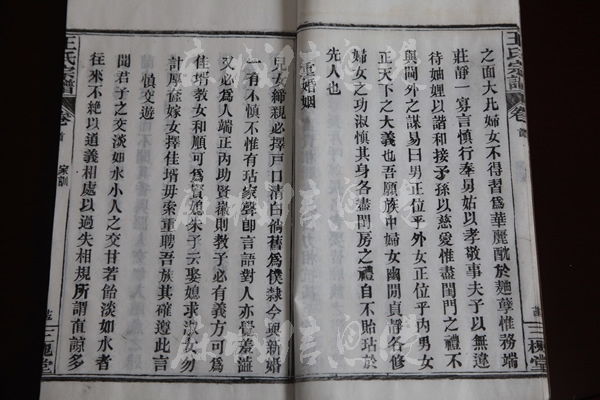 王氏宗譜
卷首
家訓
三槐堂
之面大凡婦女不得習為華麗酖於麯孽惟務端
莊靜一寡言慎行奉舅姑以孝敬事夫子以無違
待妯娌以諧和接予孫以慈愛惟盡閨門之禮不
與閫外之謀易曰男正位乎外女正位乎內男女
正天下之大義也吾願族中婦女幽閒貞靜各修
婦女之功淑慎其身各盡閨房之禮自不貽玷於
先人也
重婚姻
兒女締親必擇戶口清白倘舊為僕隸今興新婚
一有不慎不惟有玷家聲即言語對人亦覺羞澁
又必為人端正內助賢徽則教子必有義方可為
佳壻教女和順可為賢媳朱子云娶媳求淑女勿
計厚奩嫁女擇佳壻毋索重聘吾族其確遵此言
慎交遊
聞君子之交淡如水小人之交甘若飴淡如水者
往來不絕以道義相處以過失相規所謂直諒多
王氏宗譜
卷首
家訓
三槐堂